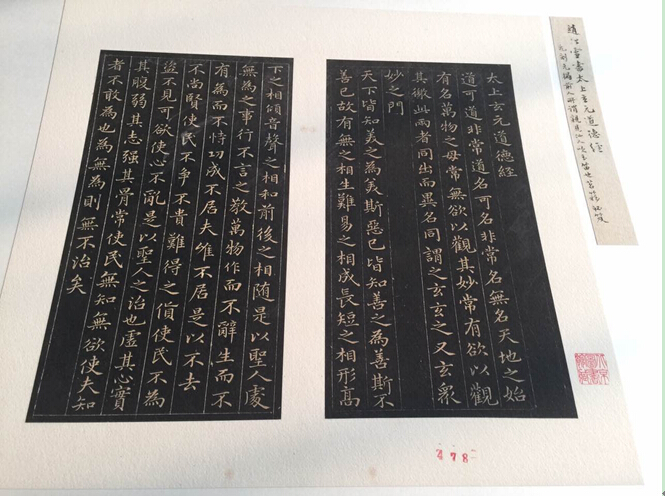 趙松雪書太上玄元道德經
太上玄元道德經
道可道非常道名可名非常名無名天地之始
有名萬物之母常無欲以觀其妙常有欲以觀
其徼此兩者同出而異名同謂之玄玄之又玄眾
妙之門
天下皆知美之為美斯惡已皆知善之為善斯不
善已故有無之相生難易之相成長短之相形高
下之相傾音聲之相和前後之相隨是以聖人處
無為之事行不言之教萬物作而不辭生而不
有為而不恃功成不居夫唯不居是以不去
不尚賢使民不爭不貴難得之貨使民不為
盜不見可欲使心不亂是以聖人之治也虛其心實
其腹弱其志强其骨常使民無知無欲使夫知
者不敢為也為無為則無不治矣
478